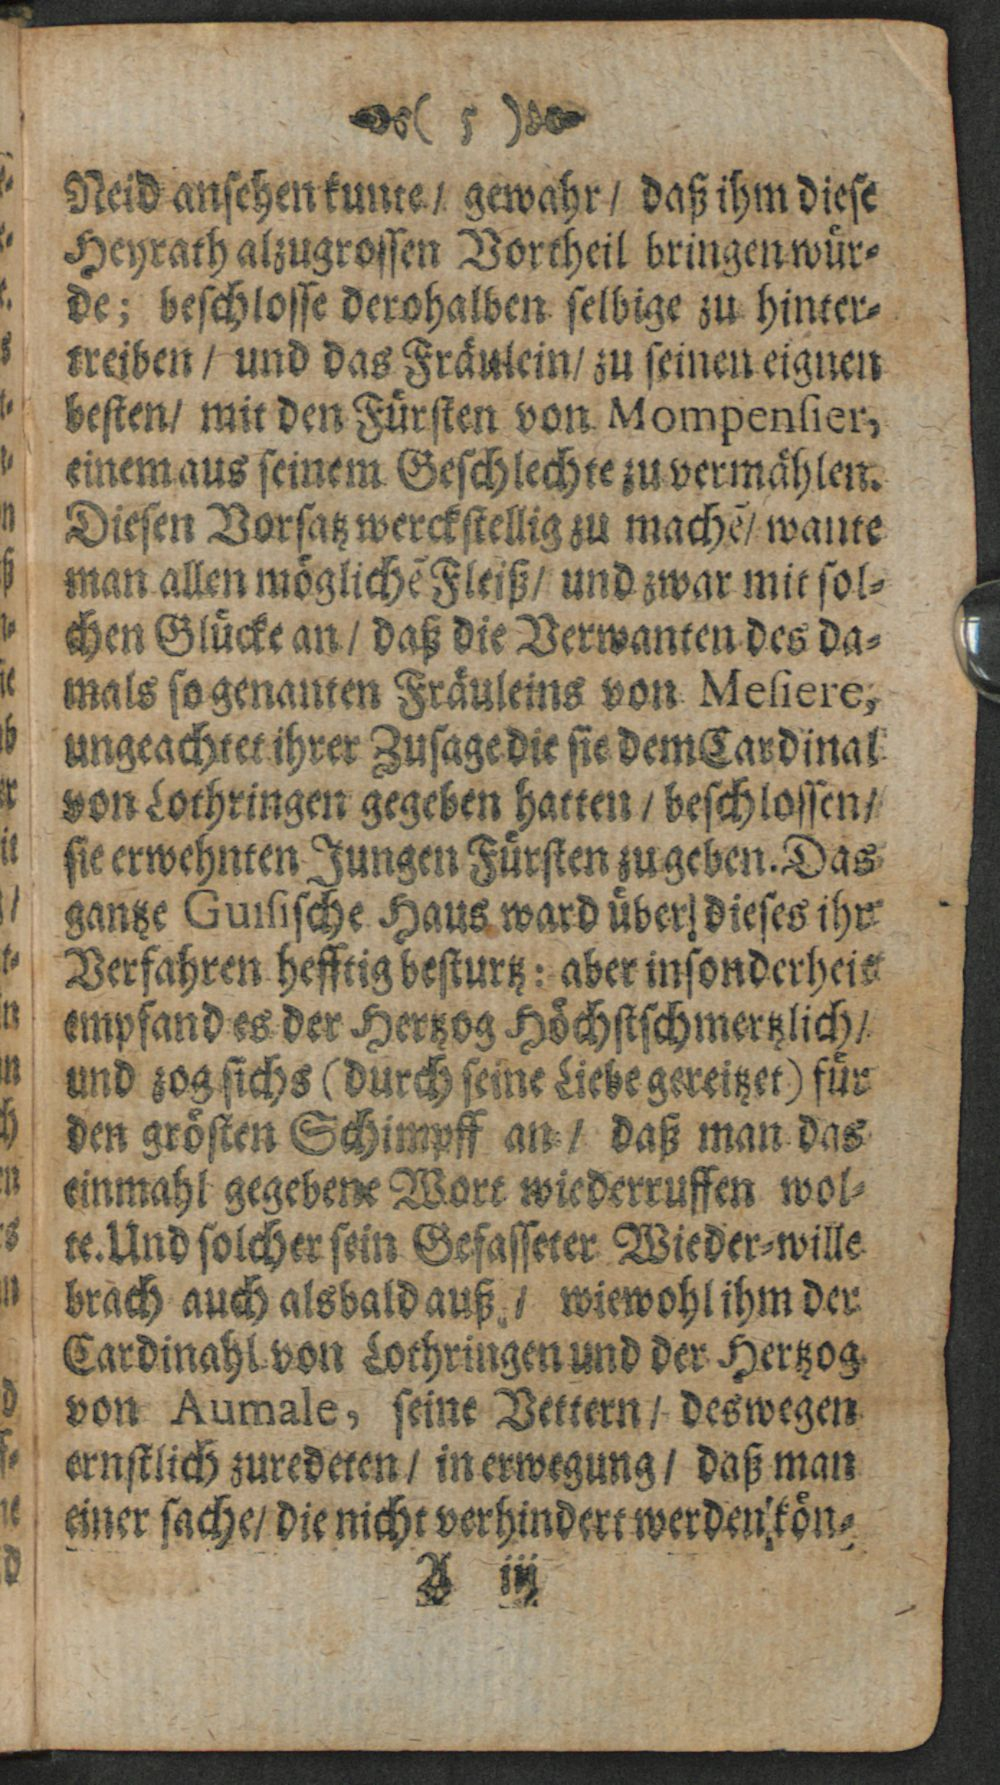 ( 5 )
Neid ansehen kunte / gewahr / daß ihm diese
Heyrath alzugrossen Vortheil bringen wür⸗
de; beschlosse derohalben selbige zu hinter⸗
treiben / und das Fräulein / zu seinen eignen
besten / mit den Fürsten von Mompensier,
einem aus seinem Geschlechte zu vermählen.
Diesen Vorsatz werckstellig zu machẽ / wante
man allen möglichẽ Fleiß / und zwar mit sol⸗
chen Glücke an / daß die Verwanten des da⸗
mals so genanten Fräuleins von Mesiere,
ungeachtet ihrer Zusage die sie dem Cardinal
von Lothringen gegeben hatten / beschlossen /
sie erwehnten Jungen Fürsten zu geben. Das
gantze Guisische Haus ward über dieses ihr
Verfahren hefftig besturtz: aber insonderheit
empfand es der Hertzog Höchstschmertzlich /
und zog sichs (durch seine Liebe gereitzet) für
den grösten Schimpff an / daß man das
einmahl gegebene Wort wiederruffen wol⸗
te. Und solcher sein Gefasseter Wieder⸗wille
brach auch alsbald auß / wiewohl ihm der
Cardinahl von Lothringen und der Hertzog
von Aumale, seine Vettern / deswegen
ernstlich zuredeten / in erwegung / daß man
einer sache / die nicht verhindert werden kön⸗
A iij